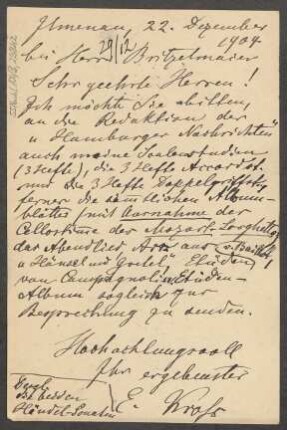 Ilmenau, 22. Dezember
1904
bei Herrn Britzelmaier
29/12
Sehr geehrte Herren!
Ich möchte Sie bitten,
an die Redaktion der
„Hamburger Nachrichten"
auch meine Scalenstudien
(3 Hefte), die 3 Hefte Accordst.
und die 3 Hefte Doppelgriffst.,
ferner die sämtlichen Album-
blätter (mit Ausnahme der
Cellostimme des Mozart-Larghetto)
das Abendlied Arie aus
„Hänsel und Gretel", Etüden v. Baillot,
von Campagnoli, Etüden-
Album sogleich zur
Besprechung zu senden.
Hochachtungsvoll
Ihr ergebenster
E. Kross
Desgl.
die beiden
Händel-Sonaten